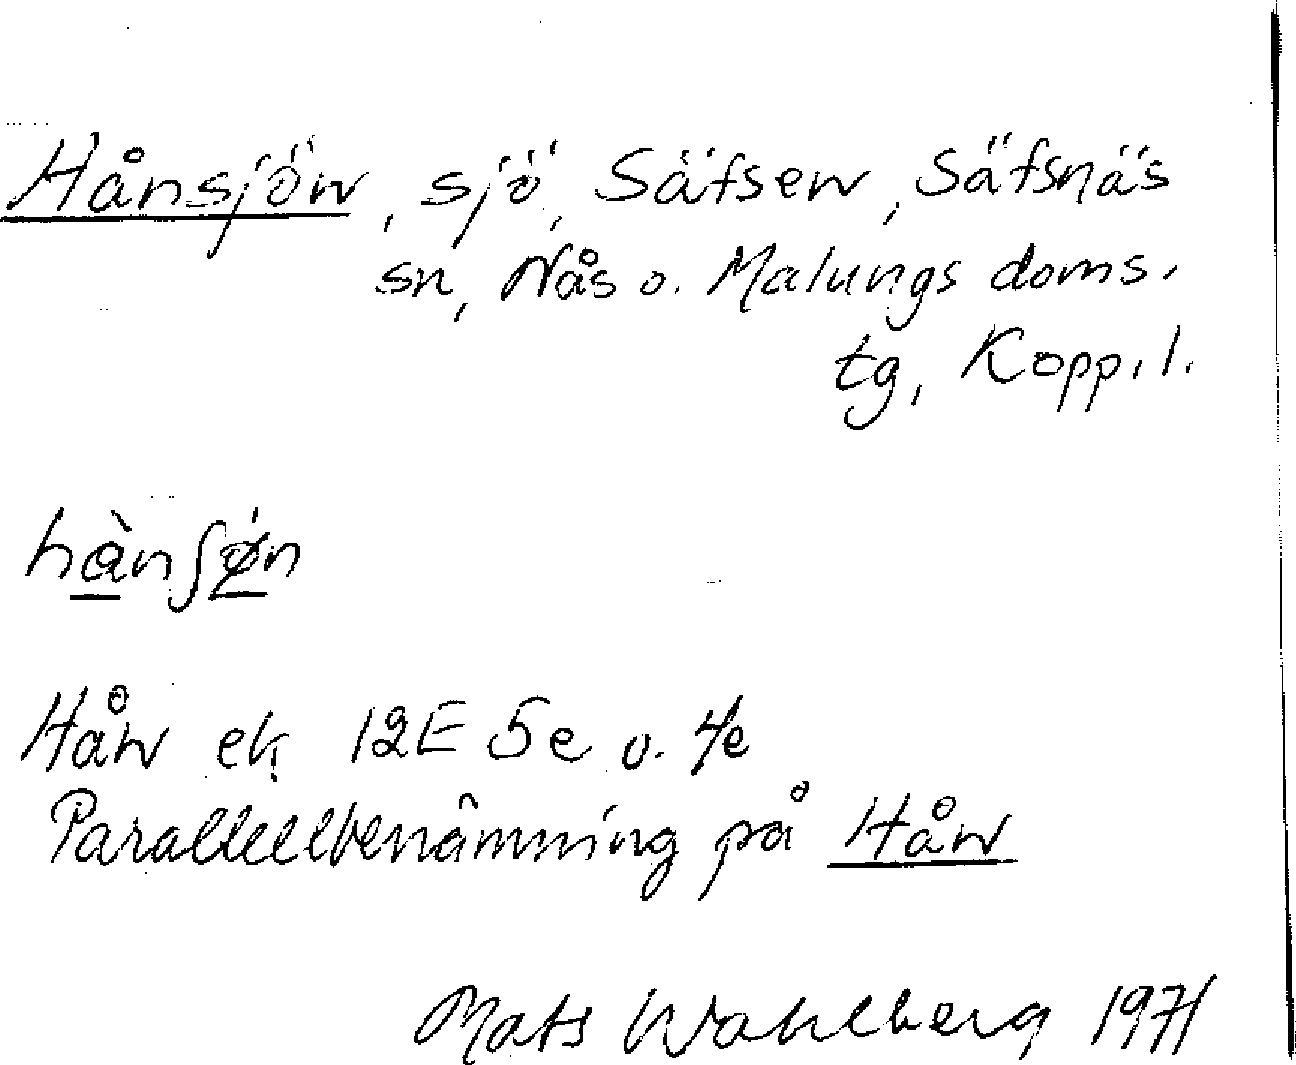 Hånsjön, sjö, Säfsen, Säfsnäs
sn, Nås o. Malungs doms.
tg, Kopp. l.
hànʃø̀n
Hån ek 12E 5e o. 4e
Parallellbenämning på Hån
Mats Wahlberg 1971